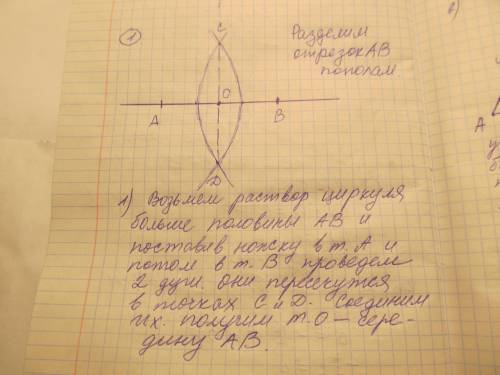 1
C
Разделим
отрезок АВ
пополам
в)
О
А
В
А
D
1) Возьмем раствор циркуля
больше половины АВ и
поставив ножку в т. А и
потом в т. В проведем
2 дуги. они пересекутся
в точках С и D. Соединим
их. получим т. О — сере-
дину АВ.